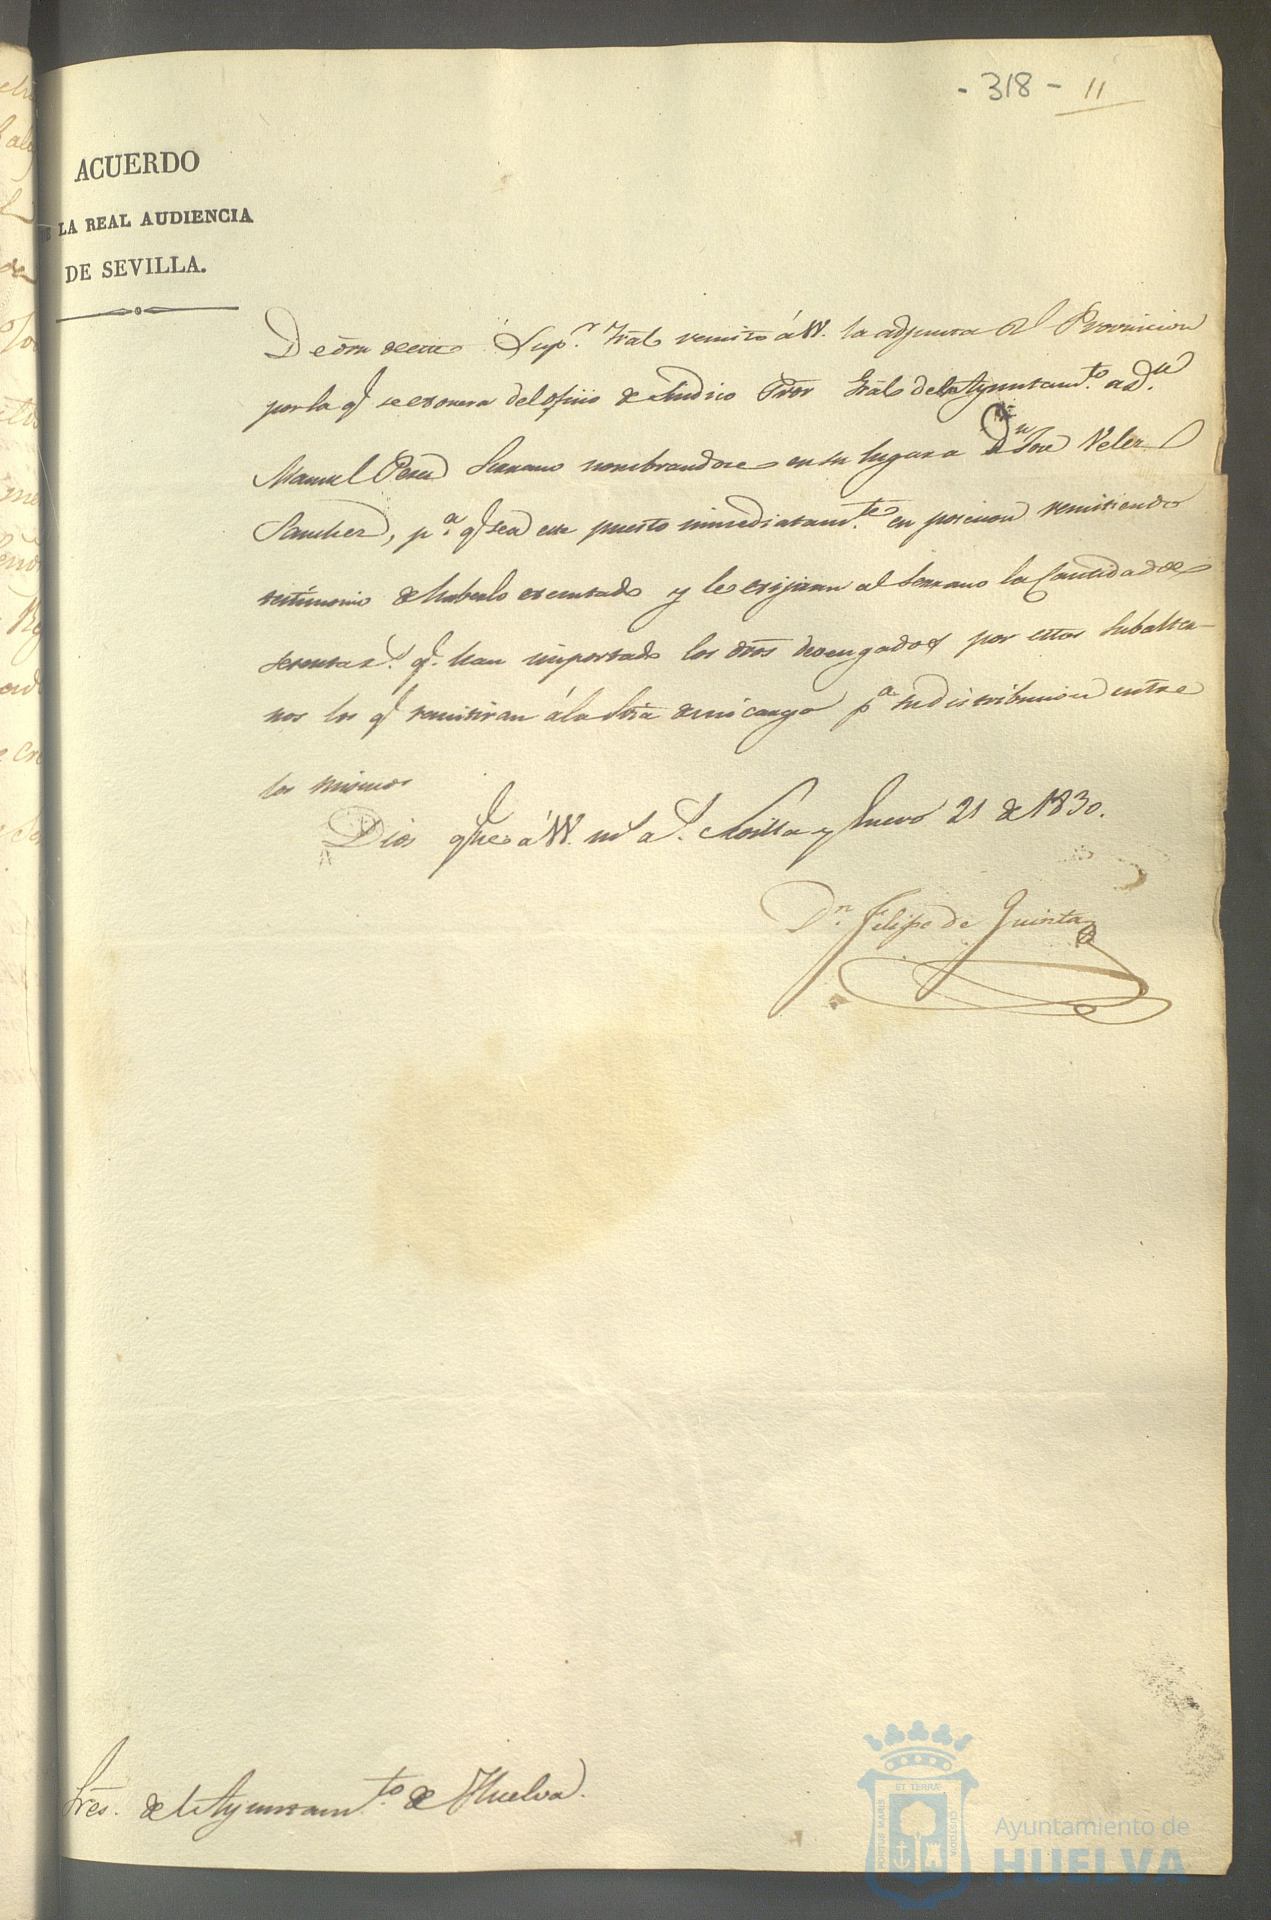 - 318 - 11
ACUERDO
DE LA REAL AUDIENCIA
DE SEVILLA.
De orn de este Supr. Tral remito á VV. la adjunta Rl Provicion
por la q. se exonera del ofiio de Sindico Pror Gral de ese Ayuntamto. a Dn
Manuel Perez Serrano nombrandose en su lugar a Dn Jose Velez
Sanchez, pa. q. sea este puesto inmediatamte. en posecion remitiendo
testimonio de haberlo executado y le exijiran al Serrano la Cantidad de
sesenta rs. q. han importado los dros devengados por estos Subalter-
nos los q. remitiran á la Sria de mi cargo pa su distribucion entre
los mismos
Dios gue á VV. ms. as. Sevilla y Enero 21 de 1830.
Dn. Felipe de Quinta
Sres. de el Ayuntamto. de Huelva.
PORTUS MARIS
ET TERRÆ
CUSTODIA
Ayuntamiento de
HUELVA